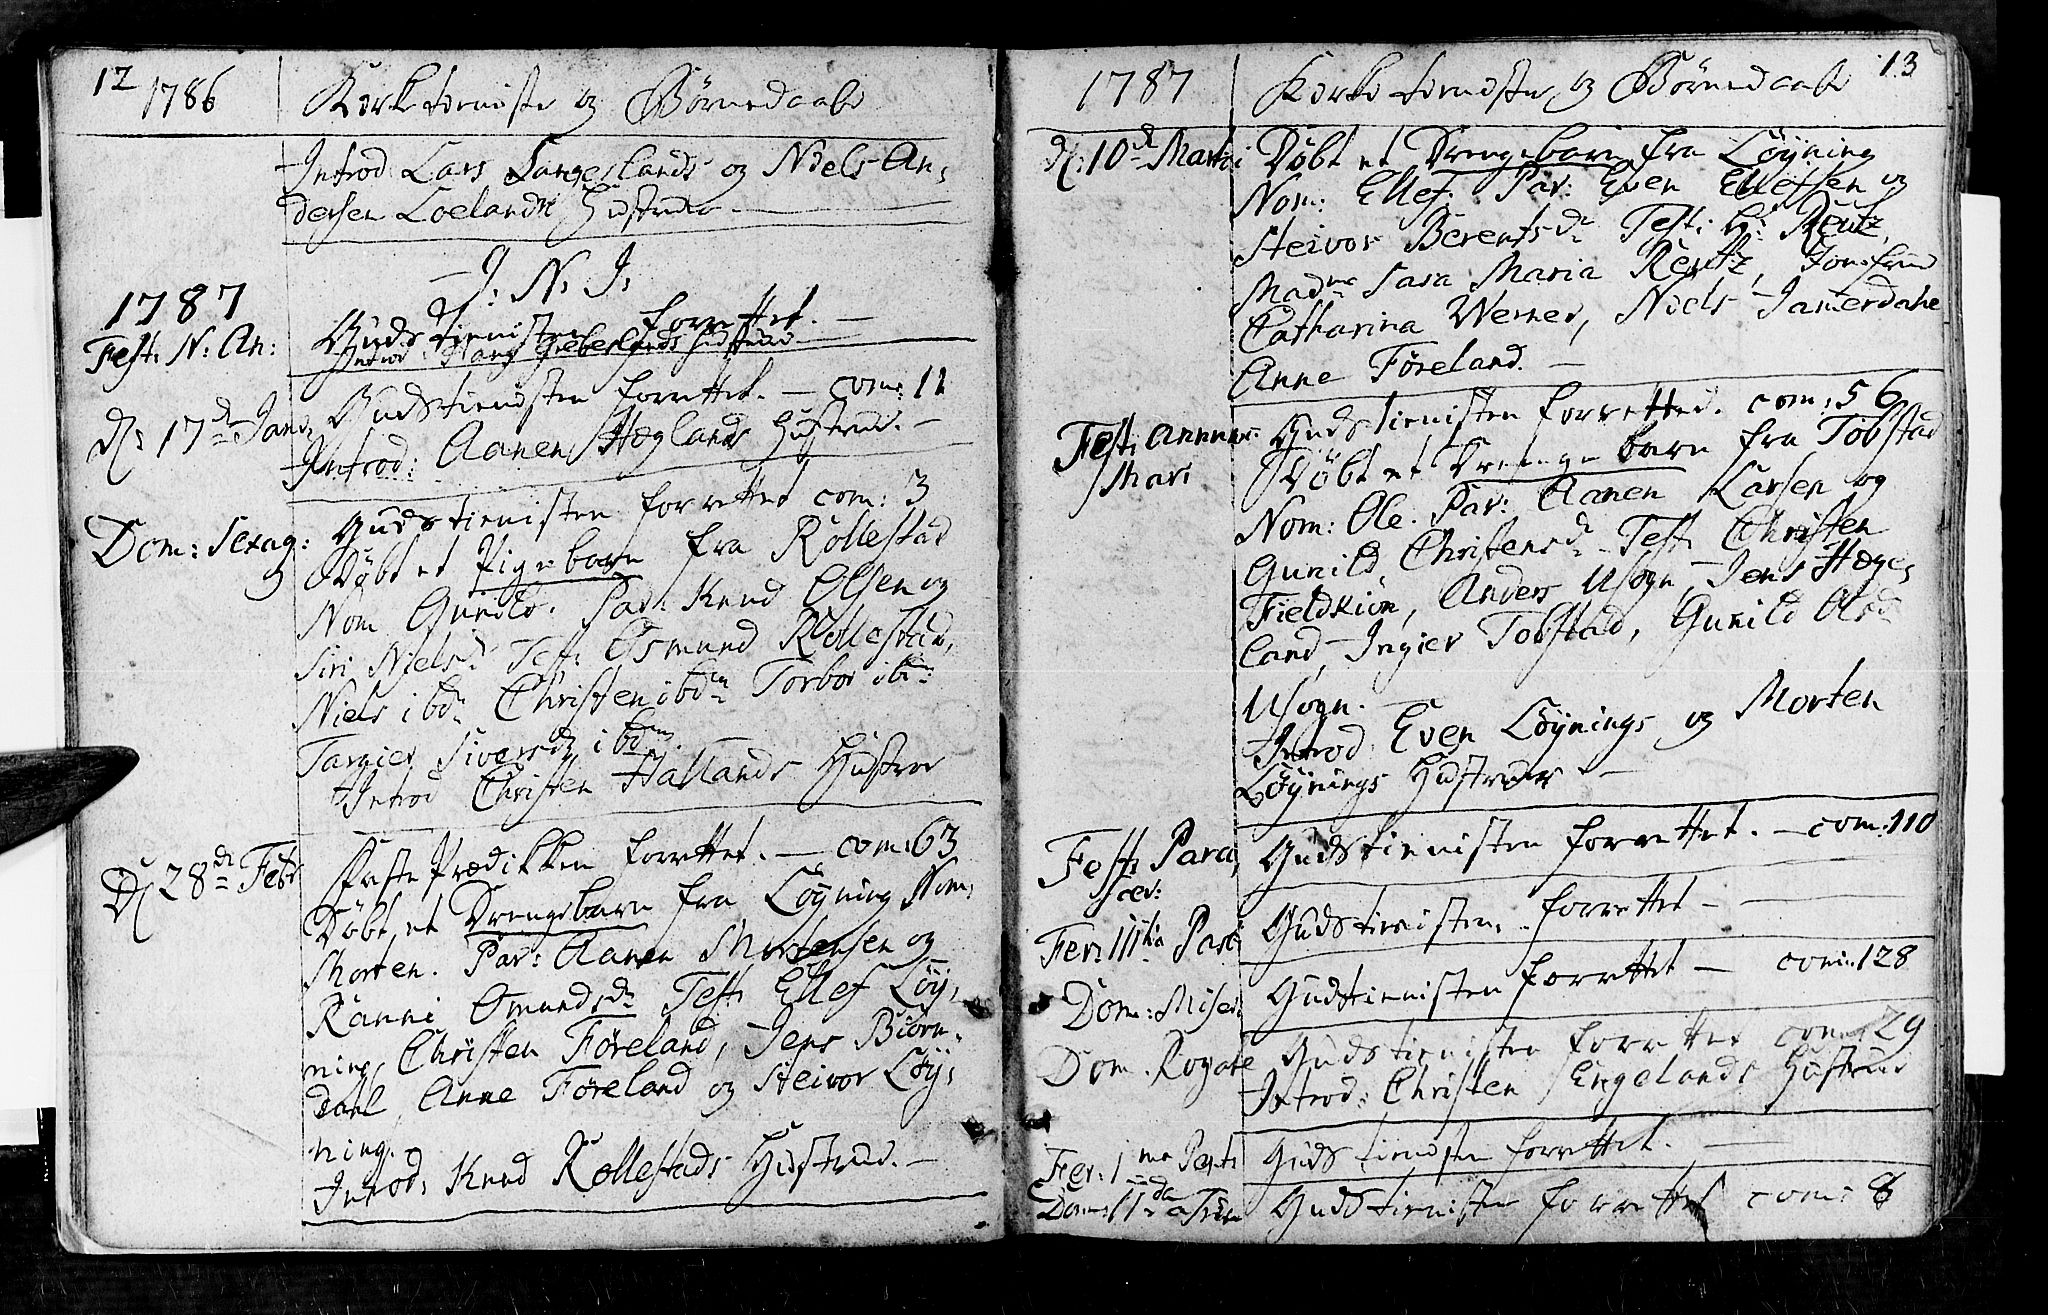 12 1786 Kirke tieniste og Børnedaabe
Introd: Lars Langeslands og Niels An,
dersen Loelands Hustruer
J: N: J:
1787
Fest: N: An: Gudstienisten forrettet. —
Introd: Hans Giebeslands Hustrue
d: 17de Jan: Gudstienesten forrettet. — com: 11
Introd: Aanen Høglands Hustrue. —
Dom: Sexag: Gudstienisten forrettet com: 3
Døbt et Pigebarn fra Røllestad
Nom Gunild. Par: Knud Olsen og
Siri Nielsd: Test: Osmund Røllestad,
Niels ibdm Christen ibdm Torbor ibm:
Targier Siversd: ibdm.
Introd Christen Hallands Hustroe
d: 28de Febr Faste Prædikken forrettet. — com: 63
Døbt et Drengebarn fra Löyning Nom:
Morten. Par: Aanen Mortensen og
Ranni Omundsdr Test: Ellef Löy,
ning, Christen Føreland, Jens Biörn,
dahl, Anne Føreland og Steivor Löy,
ning. —
Introd: Knud Røllestads Hustrue. —
1787 Kirke tieneste og Børnedaabe 13
d: 10de Martii Døbt et Drengebarn fra Löyning
Nom: Ellef. Par: Even Ellefsen og
Steivor Berentsdr Test: Hr Reutz,
Madme Sara Maria Reutz, Jomfrue
Catharina Werner, Niels Jamerdahl
Anne Føreland. —
Fest: Annunc: Gudstienisten forretted. com: 56
Mari Døbt et Drenge barn fra Tobstad
Nom: Ole. Par: Aanen Larsen og
Gunild Christensdr Test: Christen
Fieldskion, Anders Usogn, Jens Høge,
land, Ingier Tobstad, Gunild Olsdr
Usogn.
Introd: Even Löynings og Morten
Löynings Hustruer. —
Fest: Para, Gudstienisten forrettet. — com: 110
scev:
Fer: IIItia Pasc: Gudstienisten forrettet —
Dom: Miser: Gudstienisten forrettet — com: 128
Dom. Rogate Gudstienisten forrettet com: 29
Introd: Christen Engelands Hustrue
Fer: 1ma Pent: Gudstienesten forrettet. —
Dom: IIda Trin Gudstienisten forrettet com: 8